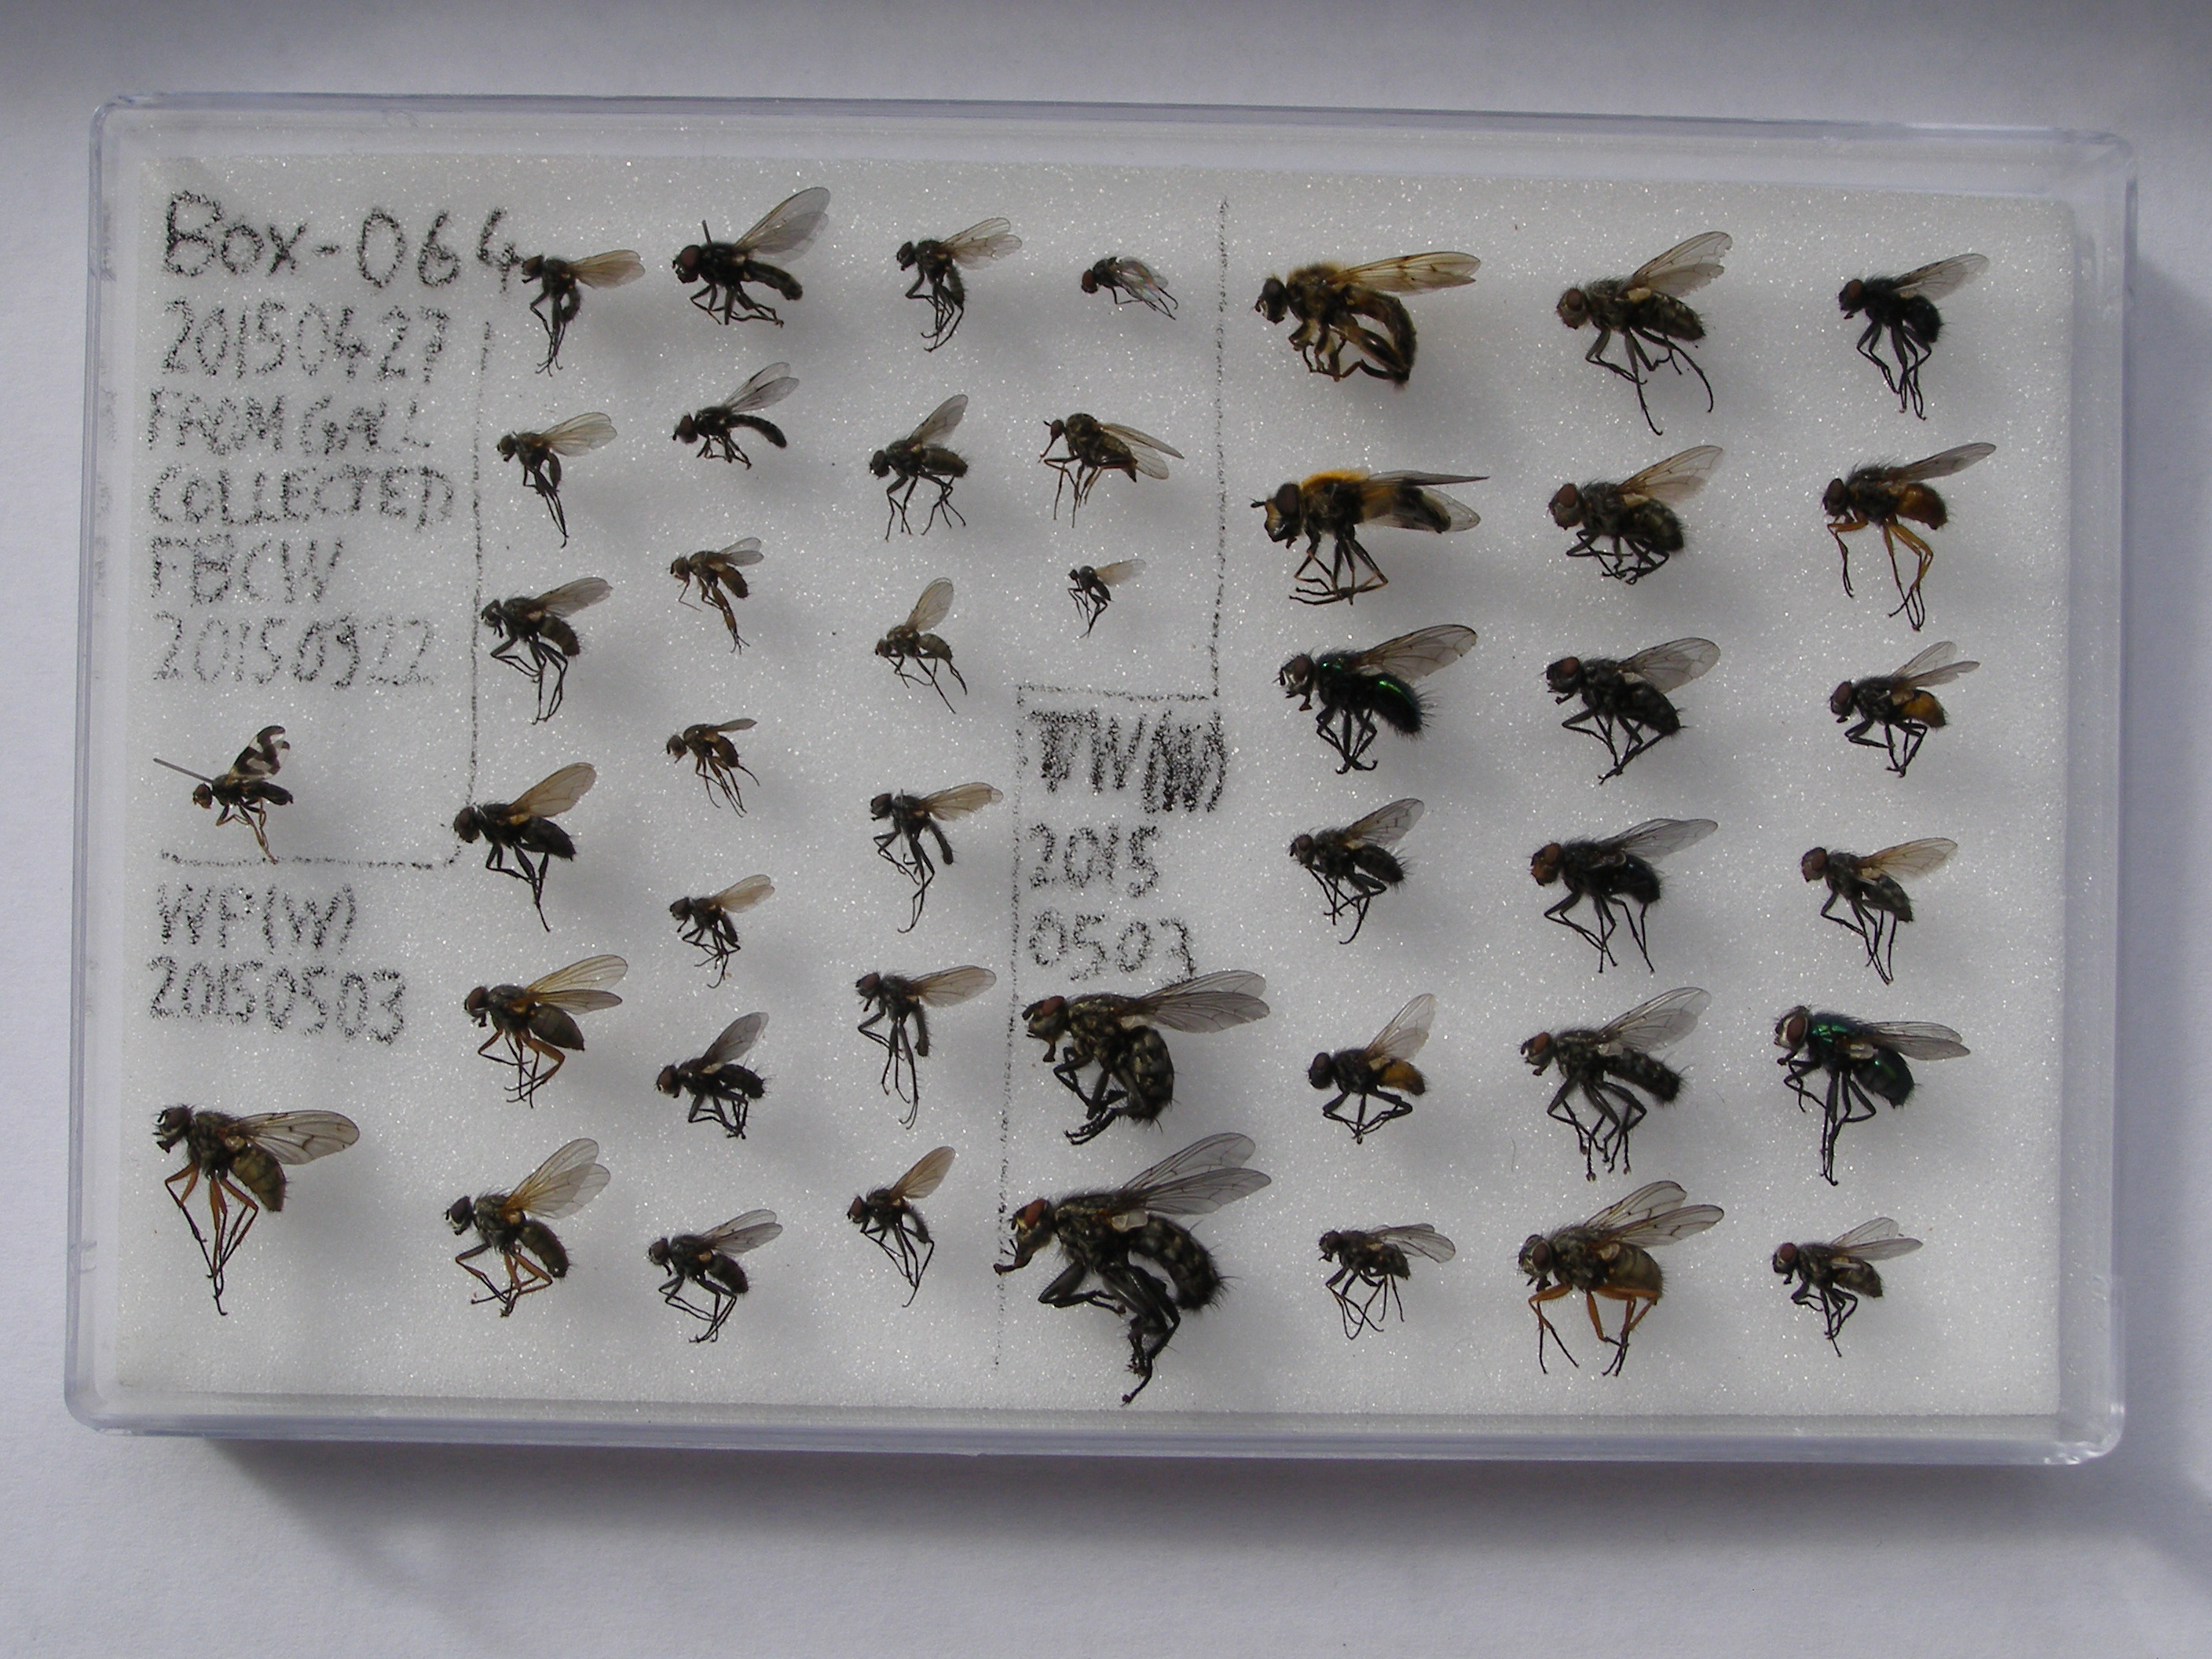 Box-064
20150427
FROM GALL
COLLECTED
FBCW
20150322
WP(W)
20150503
TW(W)
2015
0503